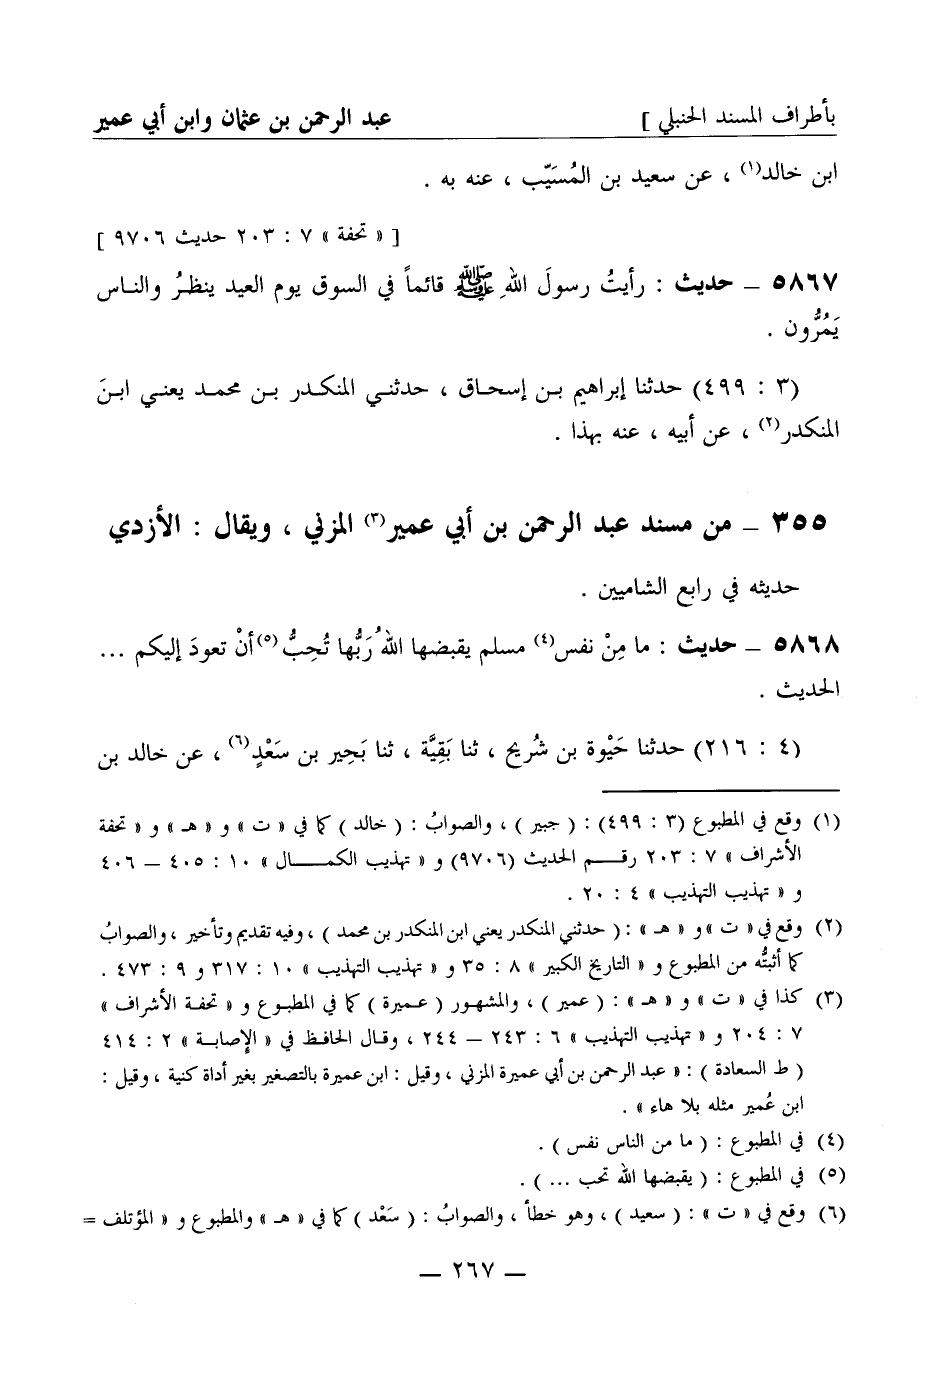 بأطراف المسند الحنبلي ] عبد الرحمن بن عثمان وابن أبي عمير
ابن خالد(١) ، عن سعيد بن المُسَيّب ، عنه به .
[ « تحفة » ٧ : ٢٠٣ حديث ٩٧٠٦ ]
٥٨٦٧ ــ حديث : رأيتُ رسولَ اللهِ ﷺ قائماً في السوق يوم العيد ينظرُ والناس
يَمُرُّون .
(٣ : ٤٩٩) حدثنا إبراهيم بن إسحاق ، حدثني المنكدر بن محمد يعني ابنَ
المنكدر(٢) ، عن أبيه ، عنه بهذا .
٣٥٥ ــ من مسند عبد الرحمن بن أبي عمير(٣) المزني ، ويقال : الأزدي
حديثه في رابع الشاميين .
٥٨٦٨ ــ حديث : ما مِنْ نفس(٤) مسلم يقبضها اللهُ رَبُّها تُحِبُّ (٥) أنْ تعودَ إليكم ...
الحديث .
(٤ : ٢١٦) حدثنا حَيْوة بن شُريح ، ثنا بَقِيَّة ، ثنا بَحِير بن سَعْدٍ(٦) ، عن خالد بن
(١) وقع في المطبوع (٣ : ٤٩٩) : ( جبير ) ، والصوابُ : ( خالد ) كما في « ت » و « هـ » و « تحفة
الأشراف » ٧ : ٢٠٣ رقـم الحديث (٩٧٠٦) و « تهذيب الكمـال » ١٠ : ٤٠٥ ــ ٤٠٦
و « تهذيب التهذيب » ٤ : ٢٠ .
(٢) وقع في « ت » و « هـ » : ( حدثني المنكدر يعني ابن المنكدر بن محمد ) ، وفيه تقديم وتأخير ، والصوابُ
كما أثبتُّه من المطبوع و « التاريخ الكبير » ٨ : ٣٥ و « تهذيب التهذيب » ١٠ : ٣١٧ و ٩ : ٤٧٣ .
(٣) كذا في « ت » و « هـ » : ( عمير ) ، والمشهور ( عميرة ) كما في المطبوع و « تحفة الأشراف »
٧ : ٢٠٤ و « تهذيب التهذيب » ٦ : ٢٤٣ ــ ٢٤٤ ، وقال الحافظ في « الإصابة » ٢ : ٤١٤
( ط السعادة ) : « عبد الرحمن بن أبي عميرة المزني ، وقيل : ابن عميرة بالتصغير بغير أداة كنية ، وقيل :
ابن عُمير مثله بلا هاء » .
(٤) في المطبوع : ( ما من الناس نفس ) .
(٥) في المطبوع : ( يقبضها الله تحب ... ) .
(٦) وقع في « ت » : ( سعيد ) ، وهو خطأ ، والصوابُ : ( سَعْد ) كما في « هـ » والمطبوع و « المؤتلف =
ــ ٢٦٧ ــ